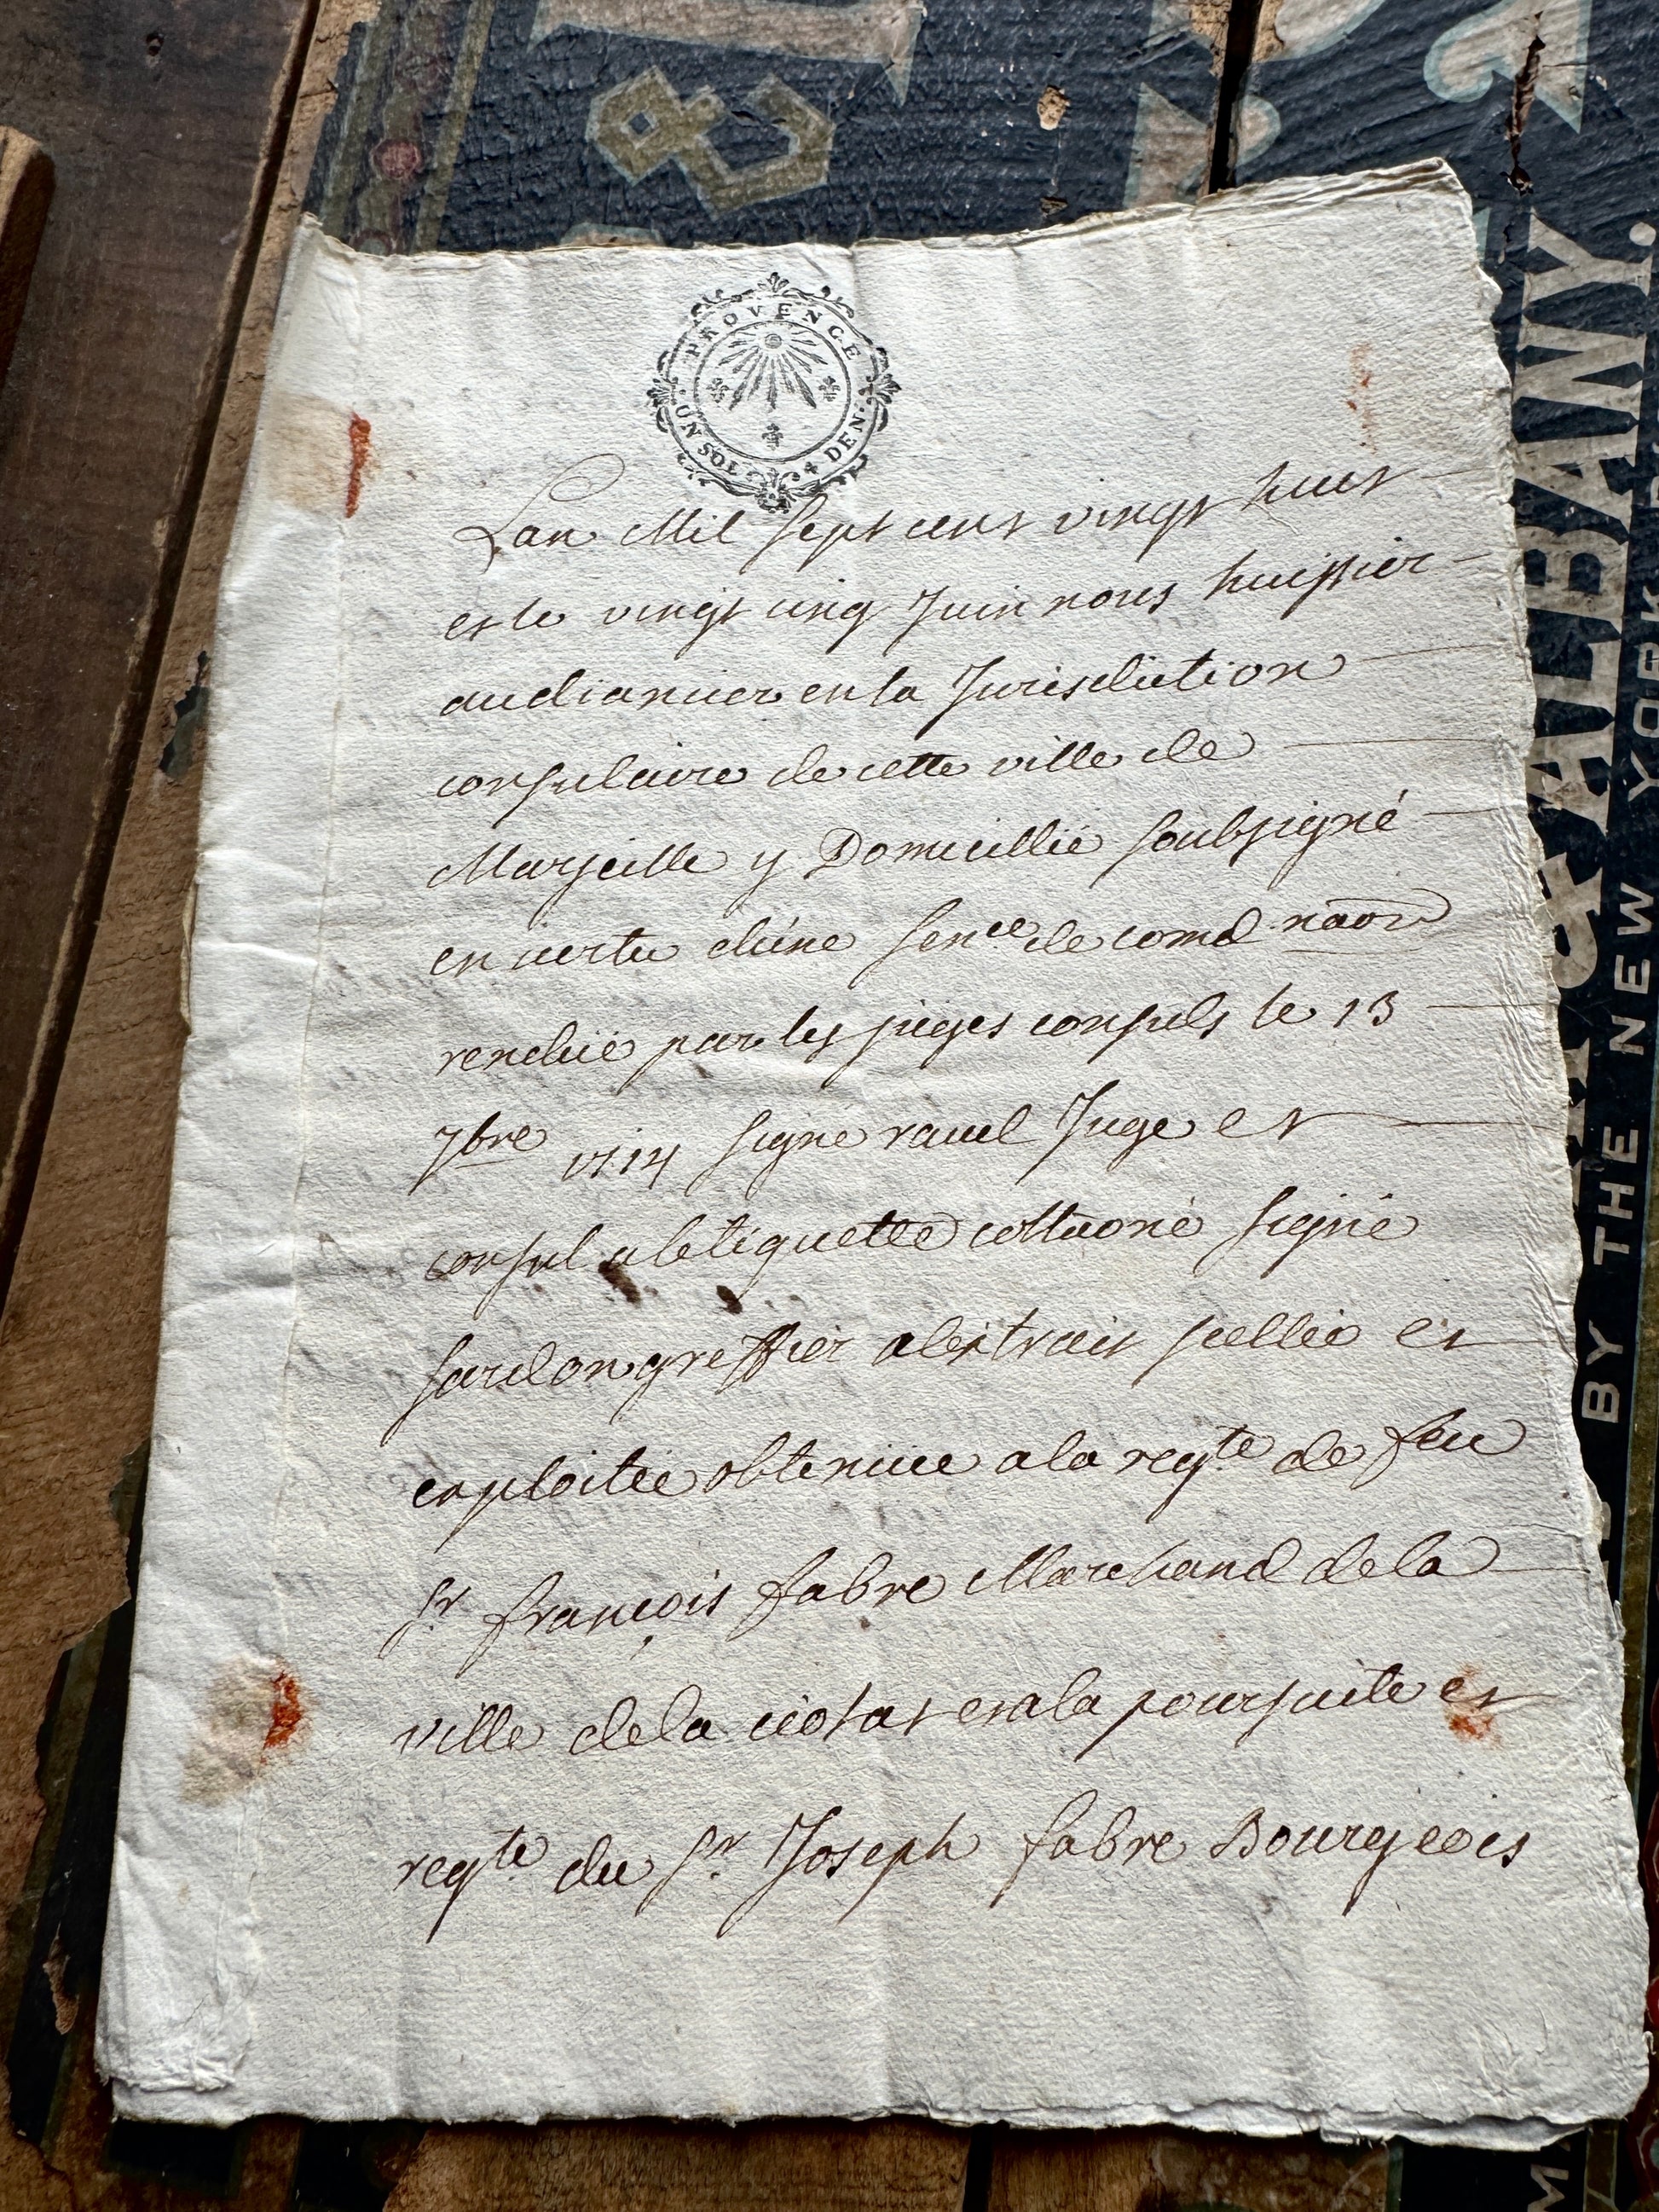 PROVENCE
UN SOL DEN.
Lan Mil sept cent vingt huit
et le vingt cinq Juin nous huissier
audiancier en la Jurisdiction
consulaire de cette ville de
Marseille y Domicillié soubsigné
en vertu d'une sence de comd naon
rendüe par les juges consuls le 13
7bre 1714 signé ravel Juge et
consul a letiquette colla͠oné signé
greffier a lextrait scellée et
exploitée obtenüe a la reqte de feu
Sr françois fabre Marchand de la
ville de la ciotat et a la poursuite et
reqte du Sr Joseph fabre Bourgeois
ALBANY.
BY THE NEW YORK